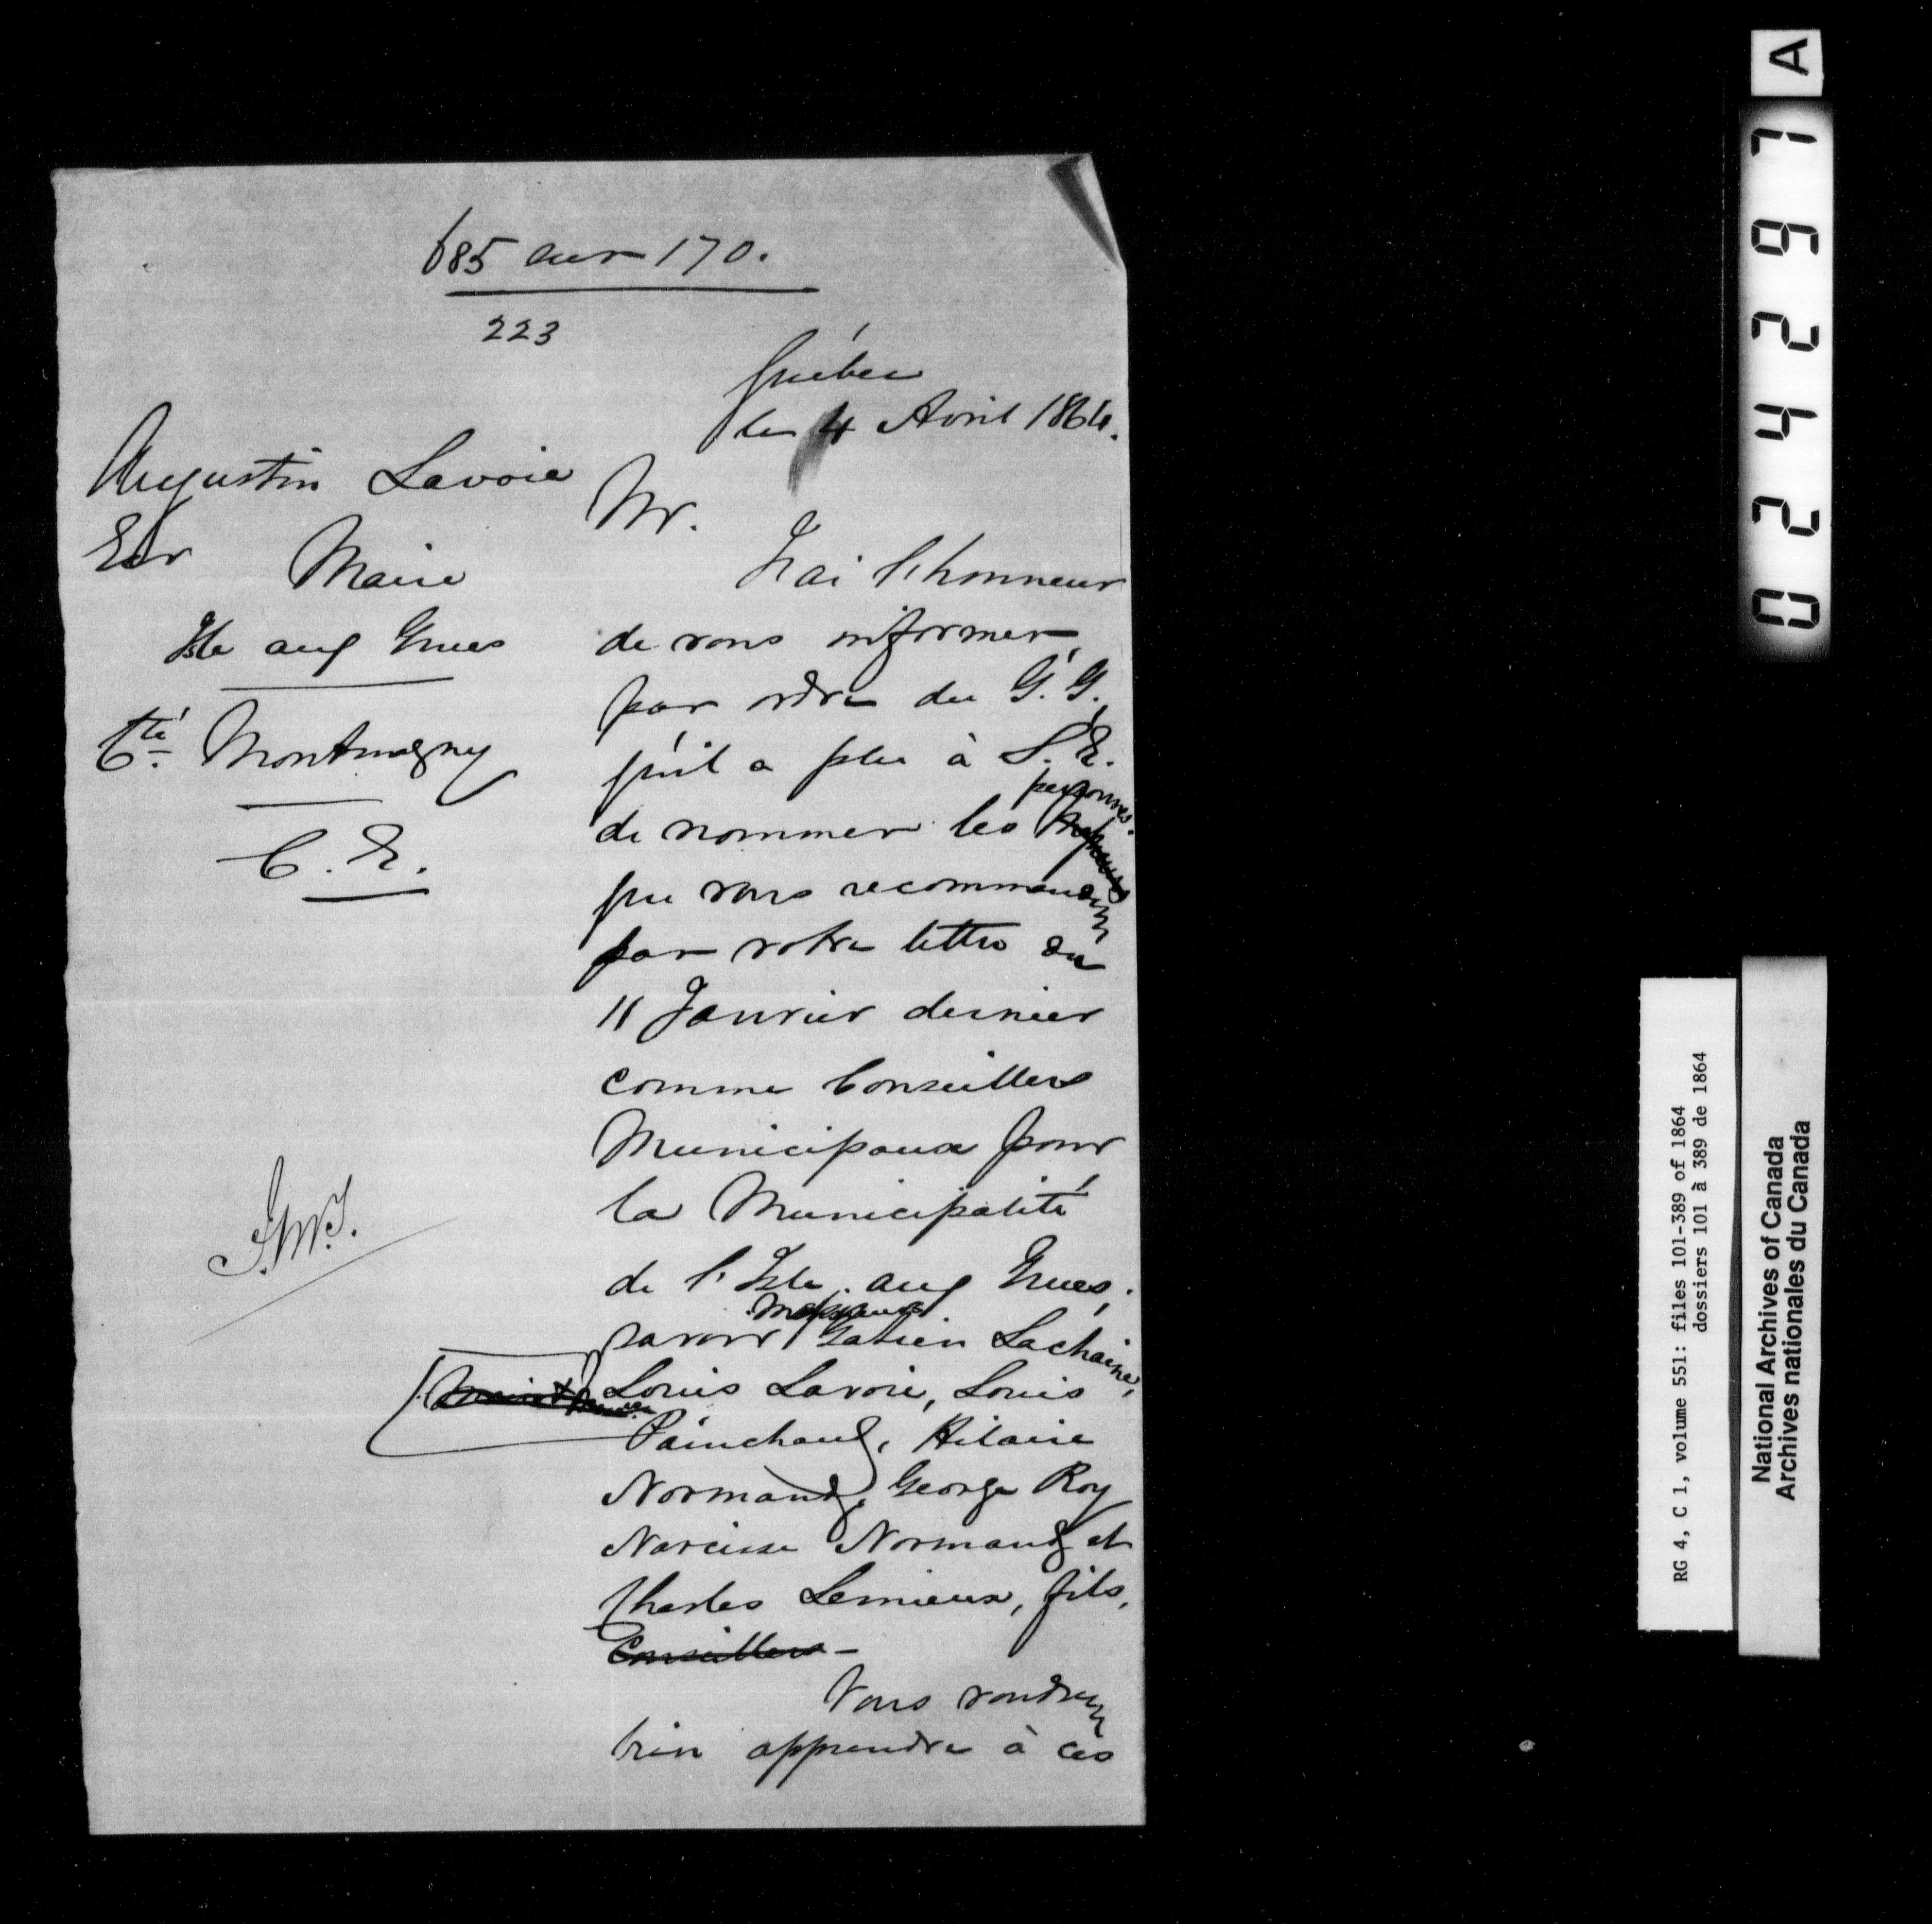 685 sur 170.
223
Québec
le 4 Avril 1864.
Augustin Lavoie
Ecr Maire
Isle aux Grues
Cté. Montmagny
C. E.
Mr.
J'ai l'honneur
de vous informer,
par ordre du G. G.,
qu'il a plu à S. E.
personnes.
de nommer les
que vous recommandez
par votre lettre du
11 Janvier dernier
comme Conseillers
Municipaux pour
la Municipalité
de l'Isle aux Grues;
Messieurs
savoir Gatien Lachaine,
Louis Lavoie, Louis
Painchaud, Hilaire
Normand, George Roy
Narcisse Normand et
Charles Lemieux, fils,
Conseillers -
Vous voudrez
bien apprendre à ces
A
024297
RG 4, C 1, volume 551: files 101-389 of 1864
dossiers 101 à 389 de 1864
National Archives of Canada
Archives nationales du Canada